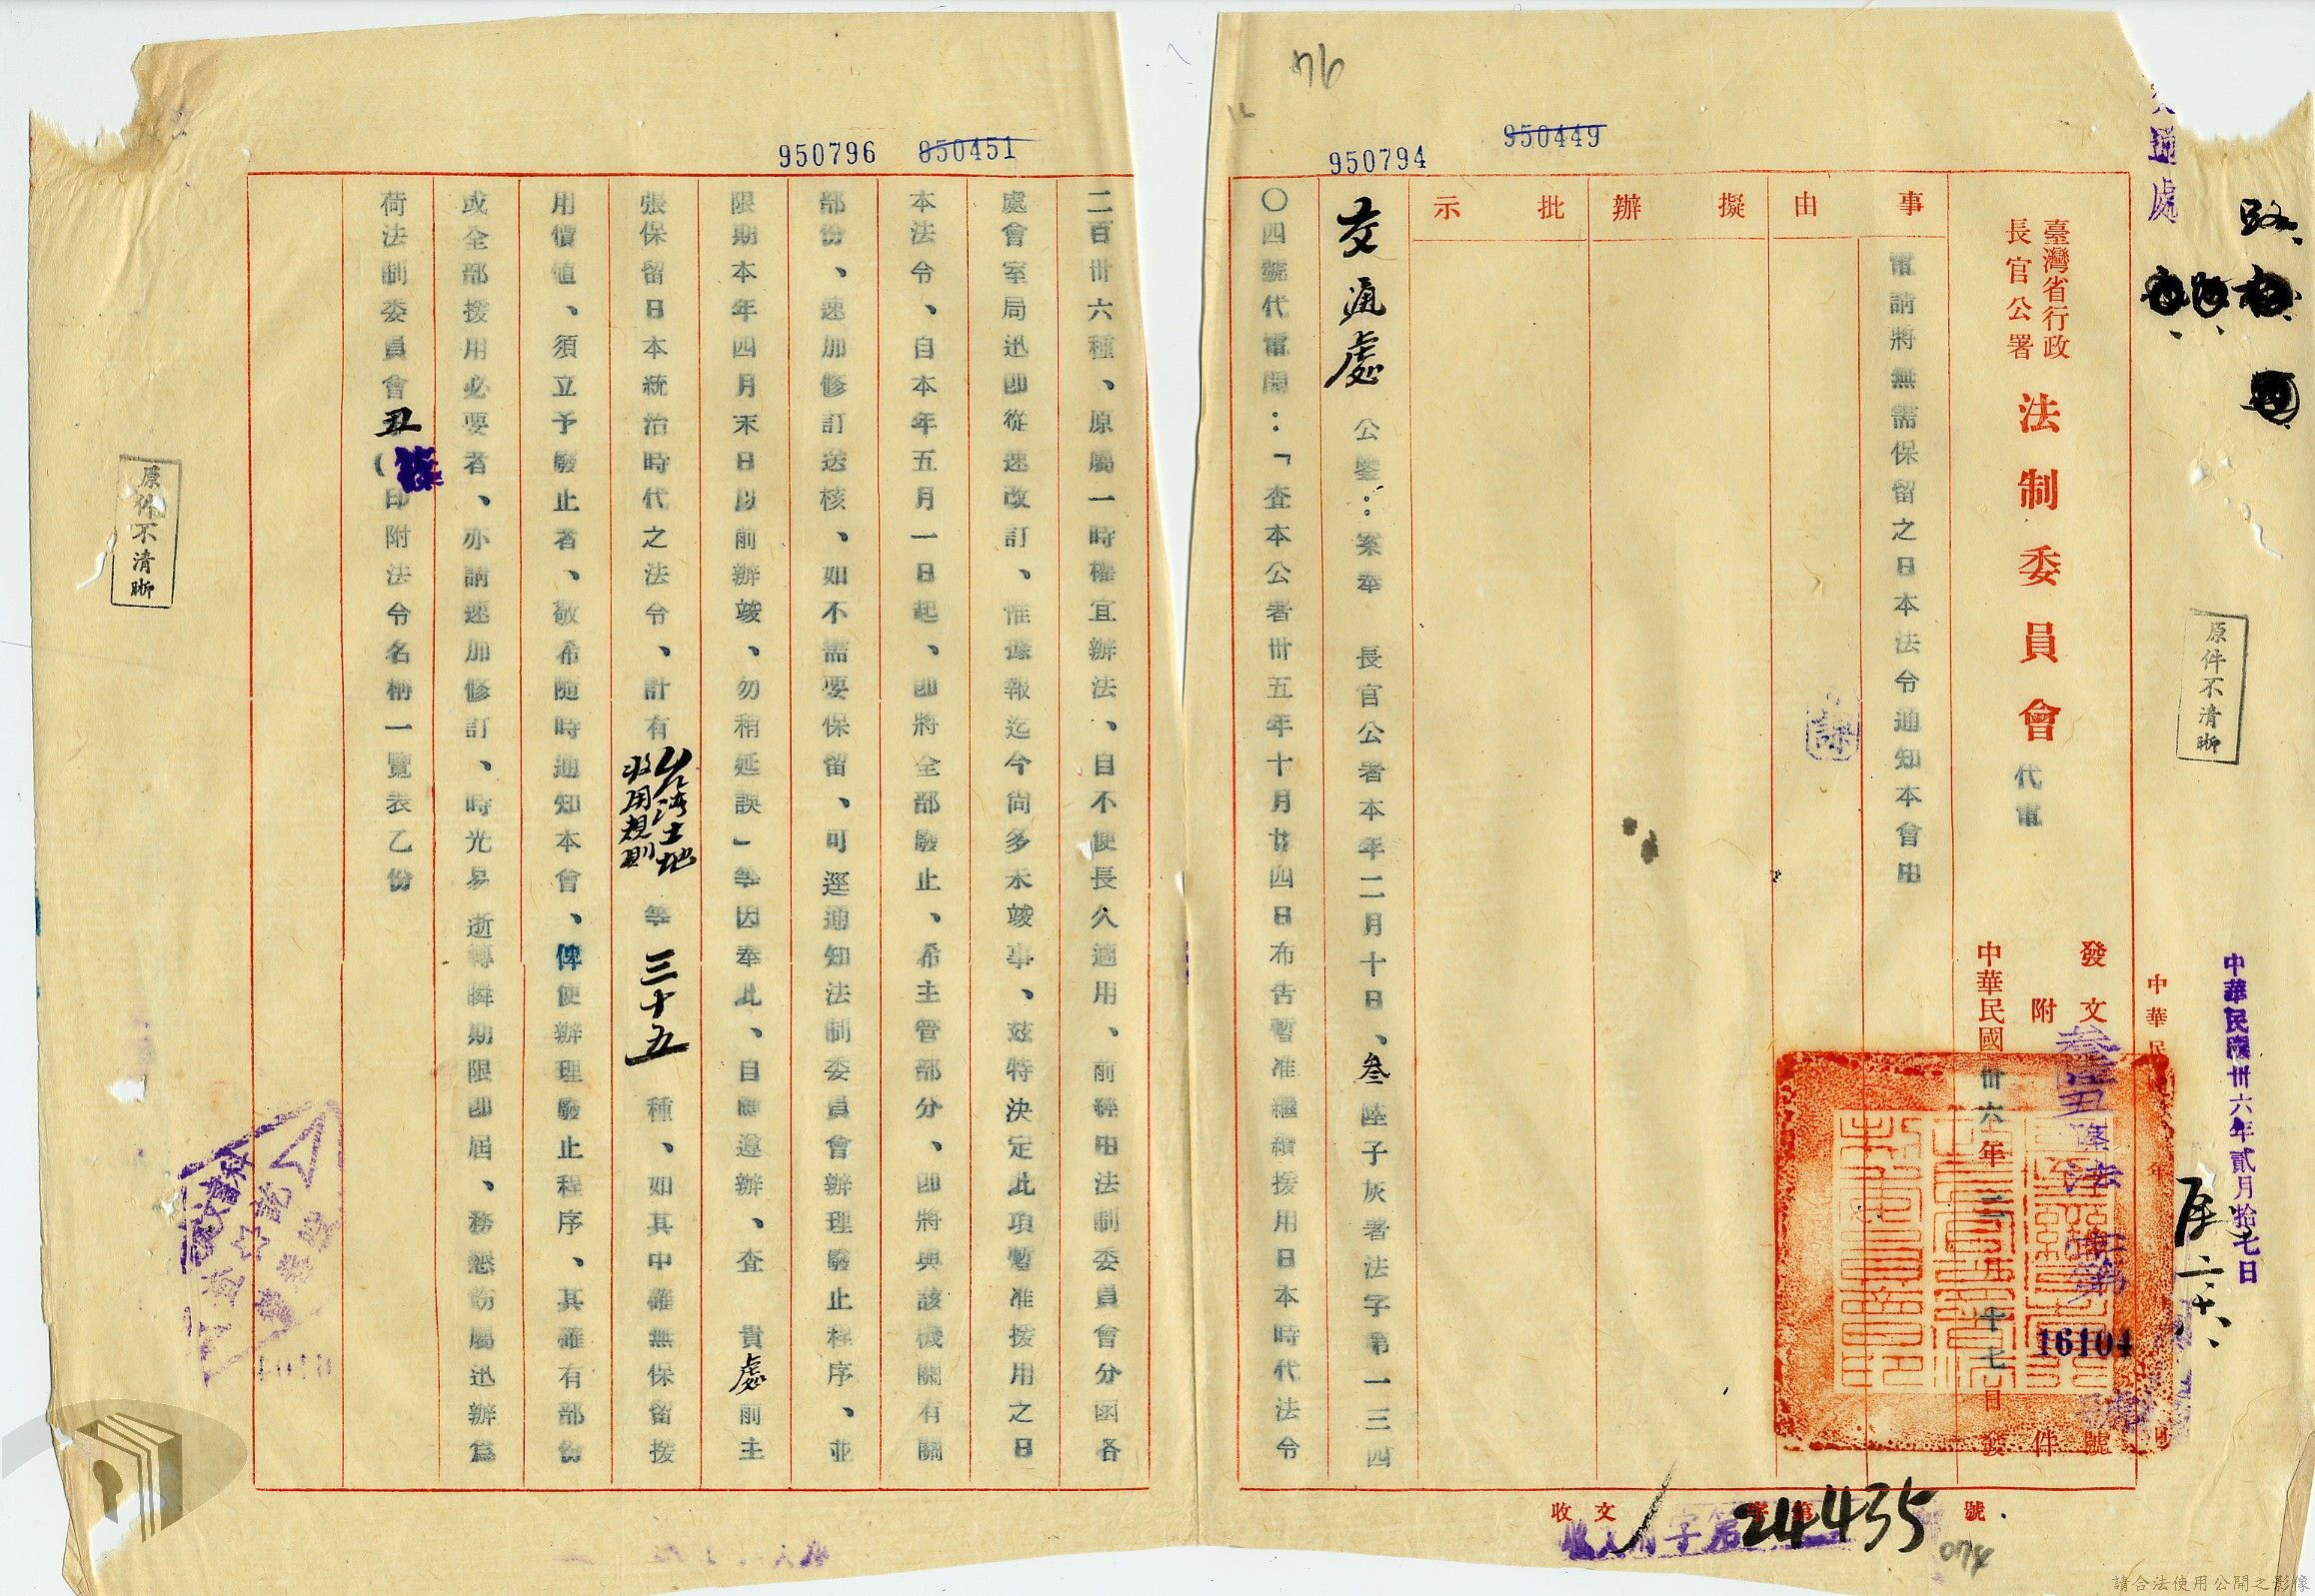 950449
950794
臺灣省行政
長官公署
法制委員會代電
事由
擬辦
批示
電請將無需保留之日本法令通知本會由
發文
附件
16104
號
中華民國卅六年二月十七日發
中華民國卅六年貳月拾七日
原件不清晰
交通處公鑒：案奉　長官公署本年二月十日、叁陸子灰署法字第一三四
〇四號代電開：「查本公署卅五年十月廿四日布告暫准繼續援用日本時代法令
收文
字第
24435
號
074
950796
950451
二百卅六種、原屬一時權宜辦法、自不便長久適用、前經由法制委員會分函各
處會室局迅即從速改訂、惟據報迄今尚多未竣事、茲特決定此項暫准援用之日
本法令、自本年五月一日起、即將全部廢止、希主管部分、即將與該機關有關
部份、速加修訂送核、如不需要保留、可逕通知法制委員會辦理廢止程序、並
限期本年四月末日以前辦竣、勿稍延誤」等因奉此、自應遵辦、查　貴處前主
張保留日本統治時代之法令、計有台灣土地收用規則等三十五種、如其中確無保留援
用價值、須立予廢止者、敬希隨時通知本會、俾便辦理廢止程序、其確有部份
或全部援用必要者、亦請速加修訂、時光易逝轉瞬期限即屆、務懇飭屬迅辦為
荷法制委員會丑（印附法令名稱一覽表乙份
原件不清晰
請合法使用公開之影像